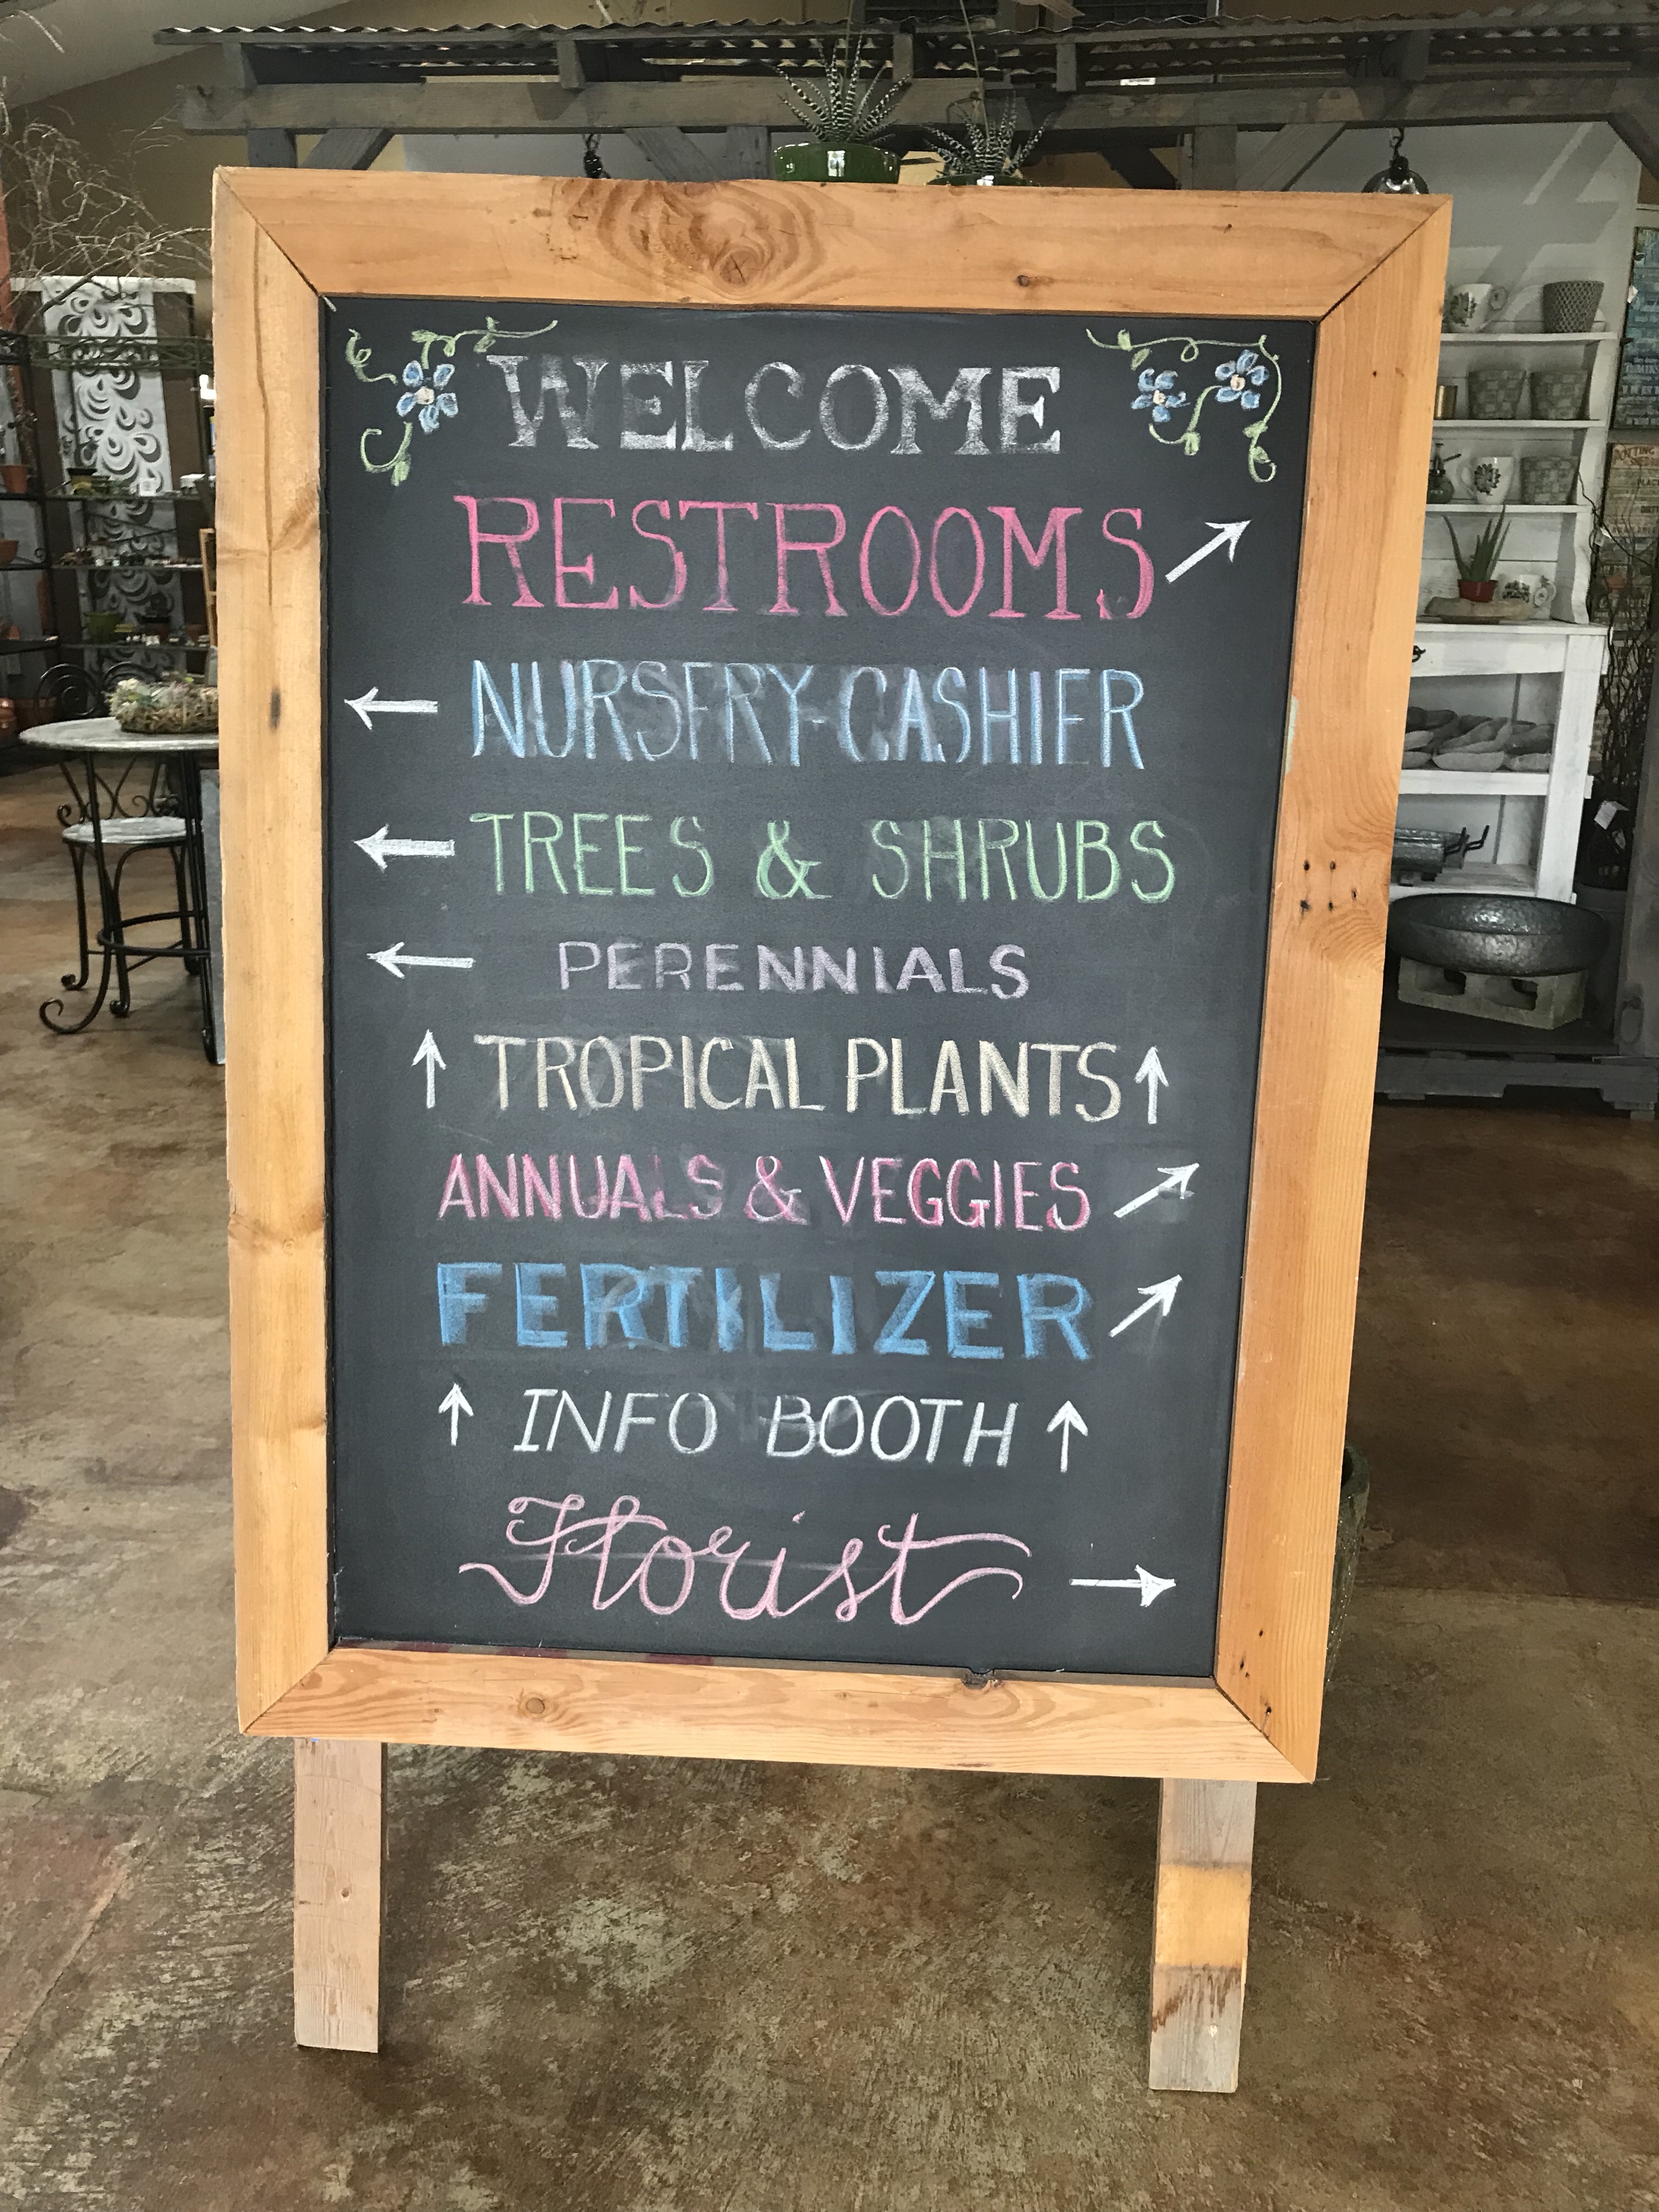 WELCOME
RESTROOMS ↗
← NURSERY-CASHIER
← TREES & SHRUBS
← PERENNIALS
↑ TROPICAL PLANTS ↑
ANNUALS & VEGGIES ↗
FERTILIZER ↗
↑ INFO BOOTH ↑
Florist →
POTTING